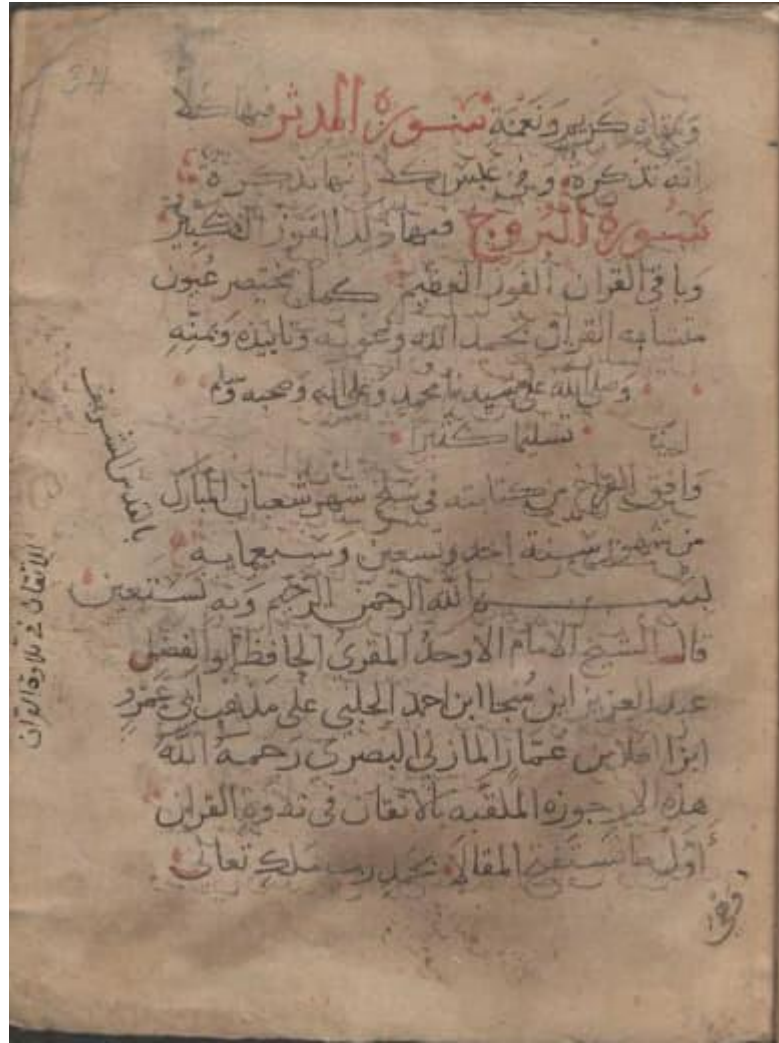 ومقام كريم ونعمة سورة المدثر فيها كلا
انه تذكرة وفي عبس كلا انها تذكرة
سورة البروج فيها ذلك الفوز الكبير
وباقي القران الفوز العظيم كمل مختصر عيون
متشابه القران بحمد الله وعونه وتاييده ومنه
وصلى الله على سيدنا محمد وعلى اله وصحبه وسلم
تسليما كثيرا
وافق الفراغ من كتابته في سلخ شهر شعبان المبارك
من شهور سنة احد وتسعين وسبعمايه
بالقدس الشريف
بسم الله الرحمن الرحيم وبه نستعين
قال الشيخ الامام الاوحد المقري الحافظ ابو الفضل
عبد العزيز ابن منجا ابن احمد الحلبي على مذهب ابي عمرو
ابن العلا بن عمار المازني البصري رحمه الله
هذه الارجوزه الملقبه بالاتقان في تلاوة القران
اول ما نستفتح المقالة بحمد رب ملك تعالى
الاتقان في تلاوة القران
34